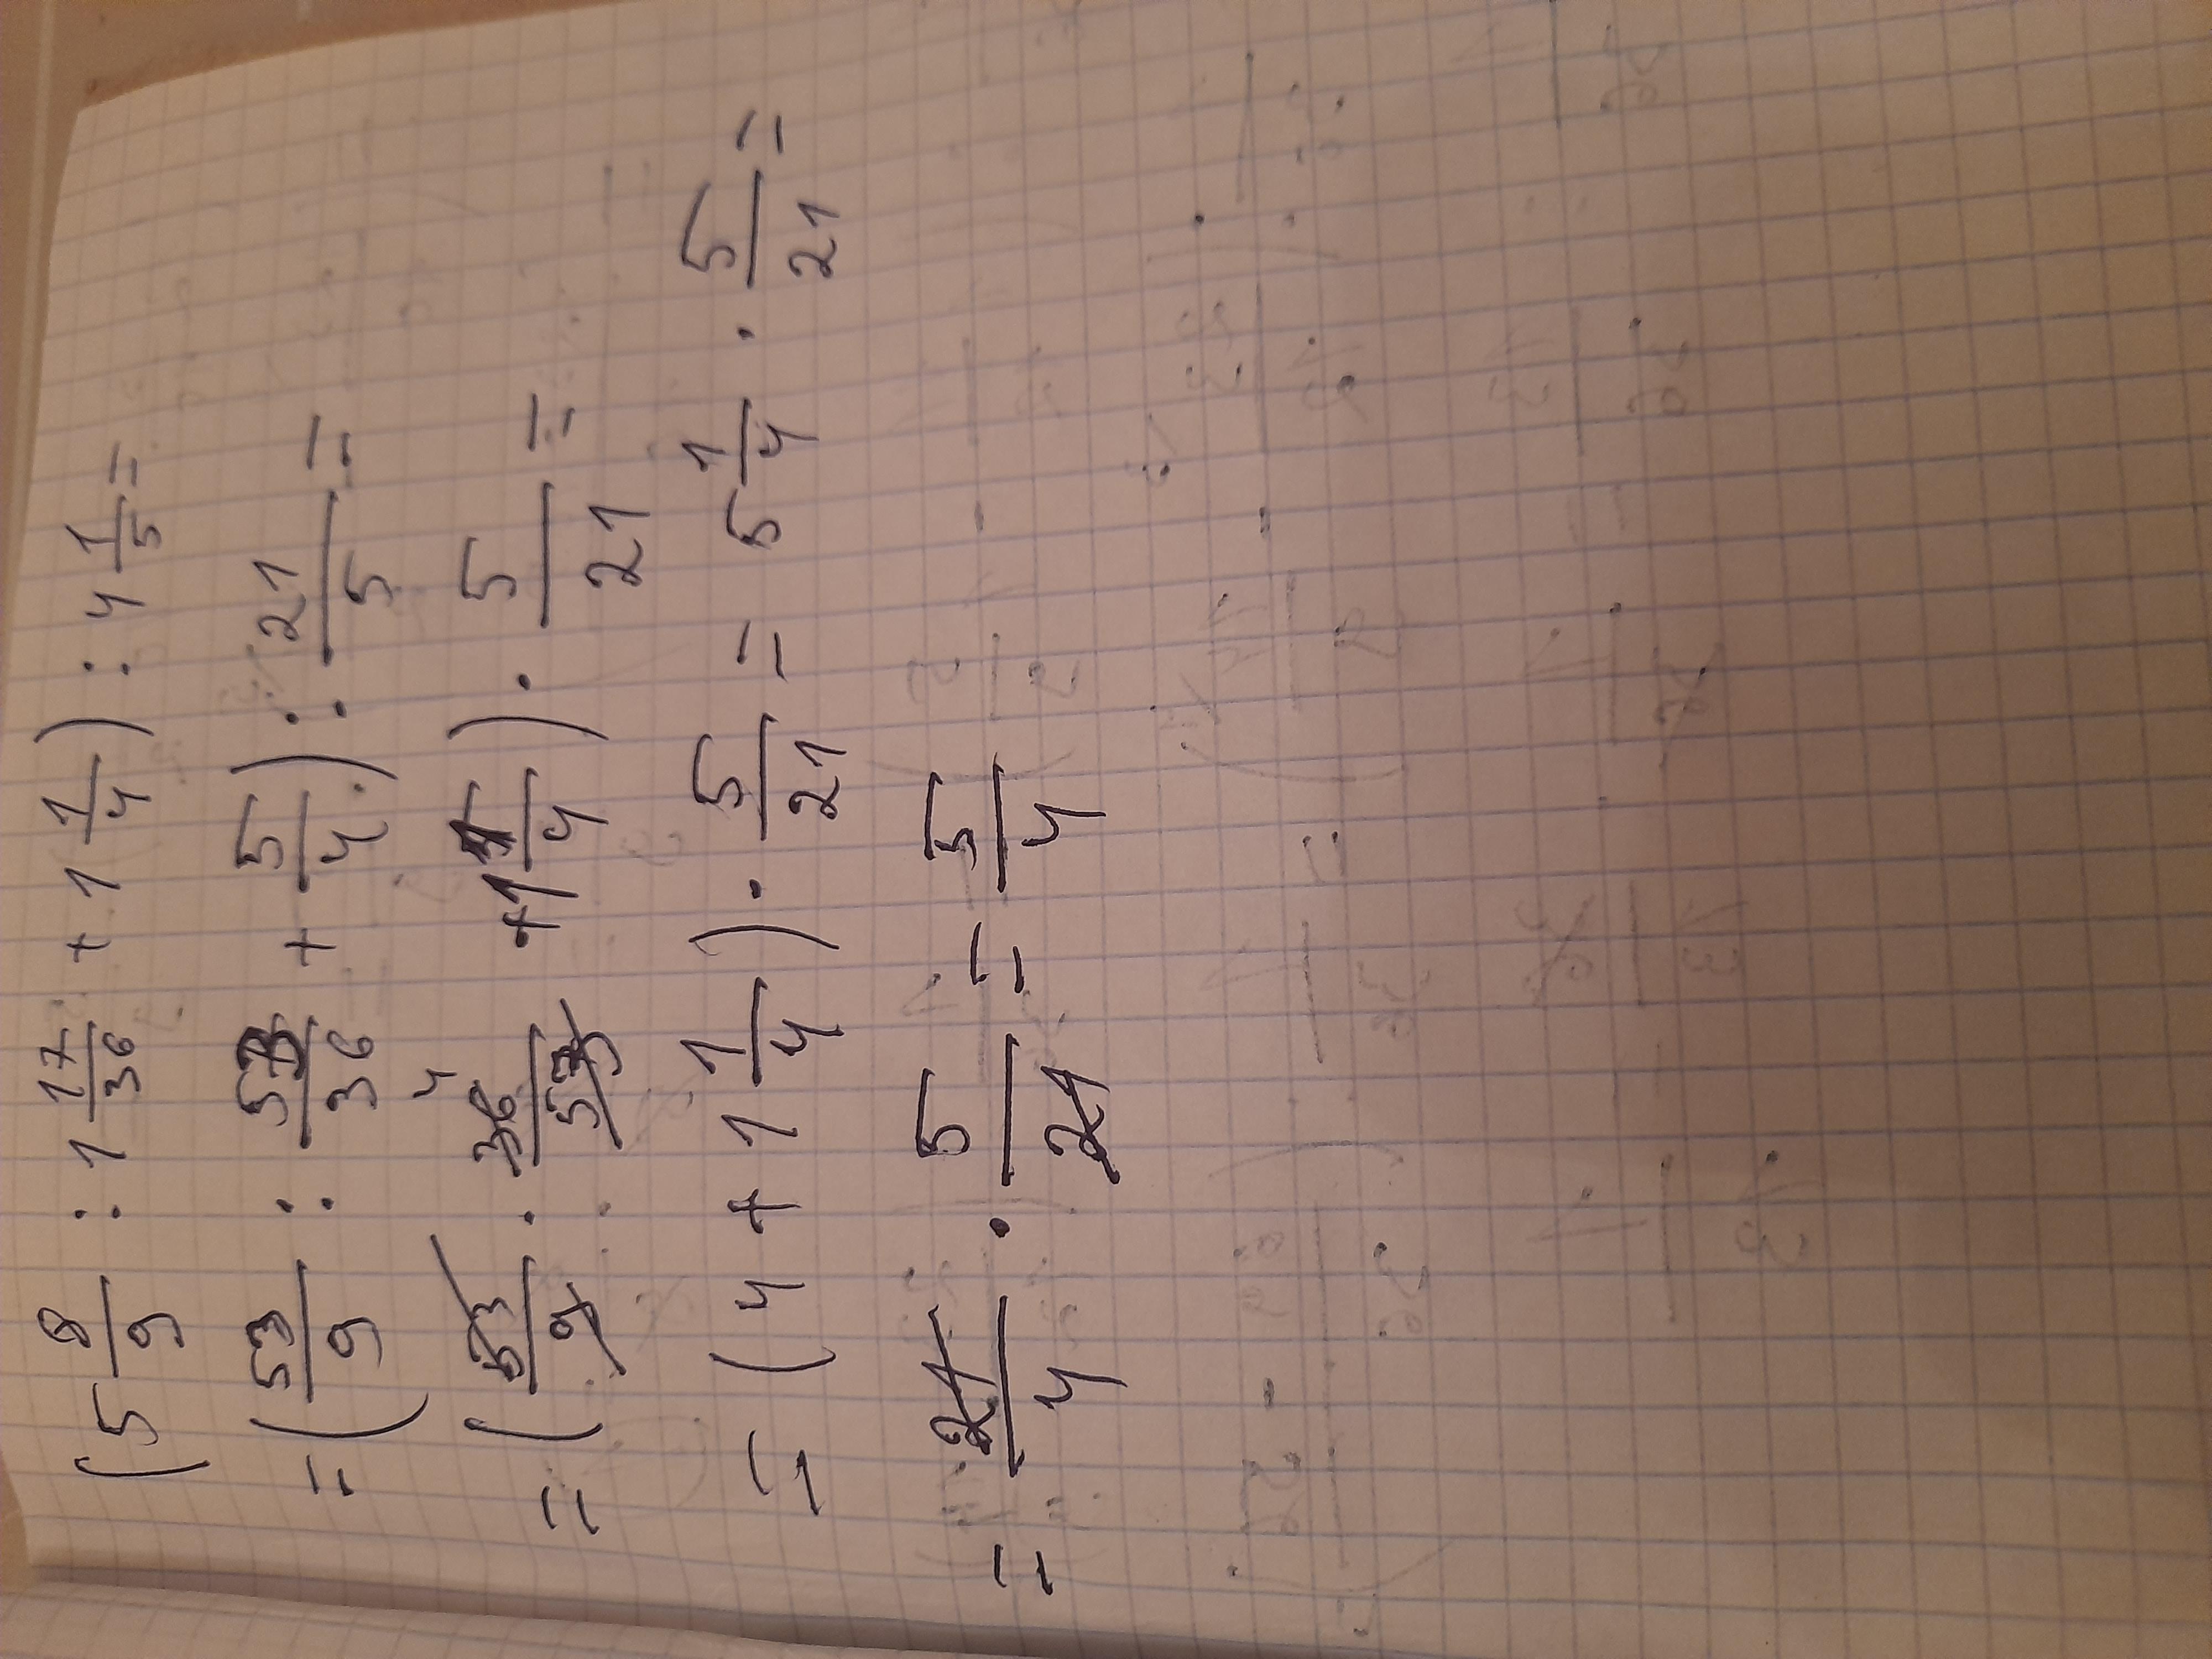 (5 8/9 : 1 17/36 + 1 1/4) : 4 1/5 =
= (53/9 : 53/36 + 5/4) : 21/5 =
= (53/9 · 36/53 + 1 1/4) · 5/21 =
= (4 + 1 1/4) · 5/21 = 5 1/4 · 5/21 =
= 21/4 · 5/21 = 5/4